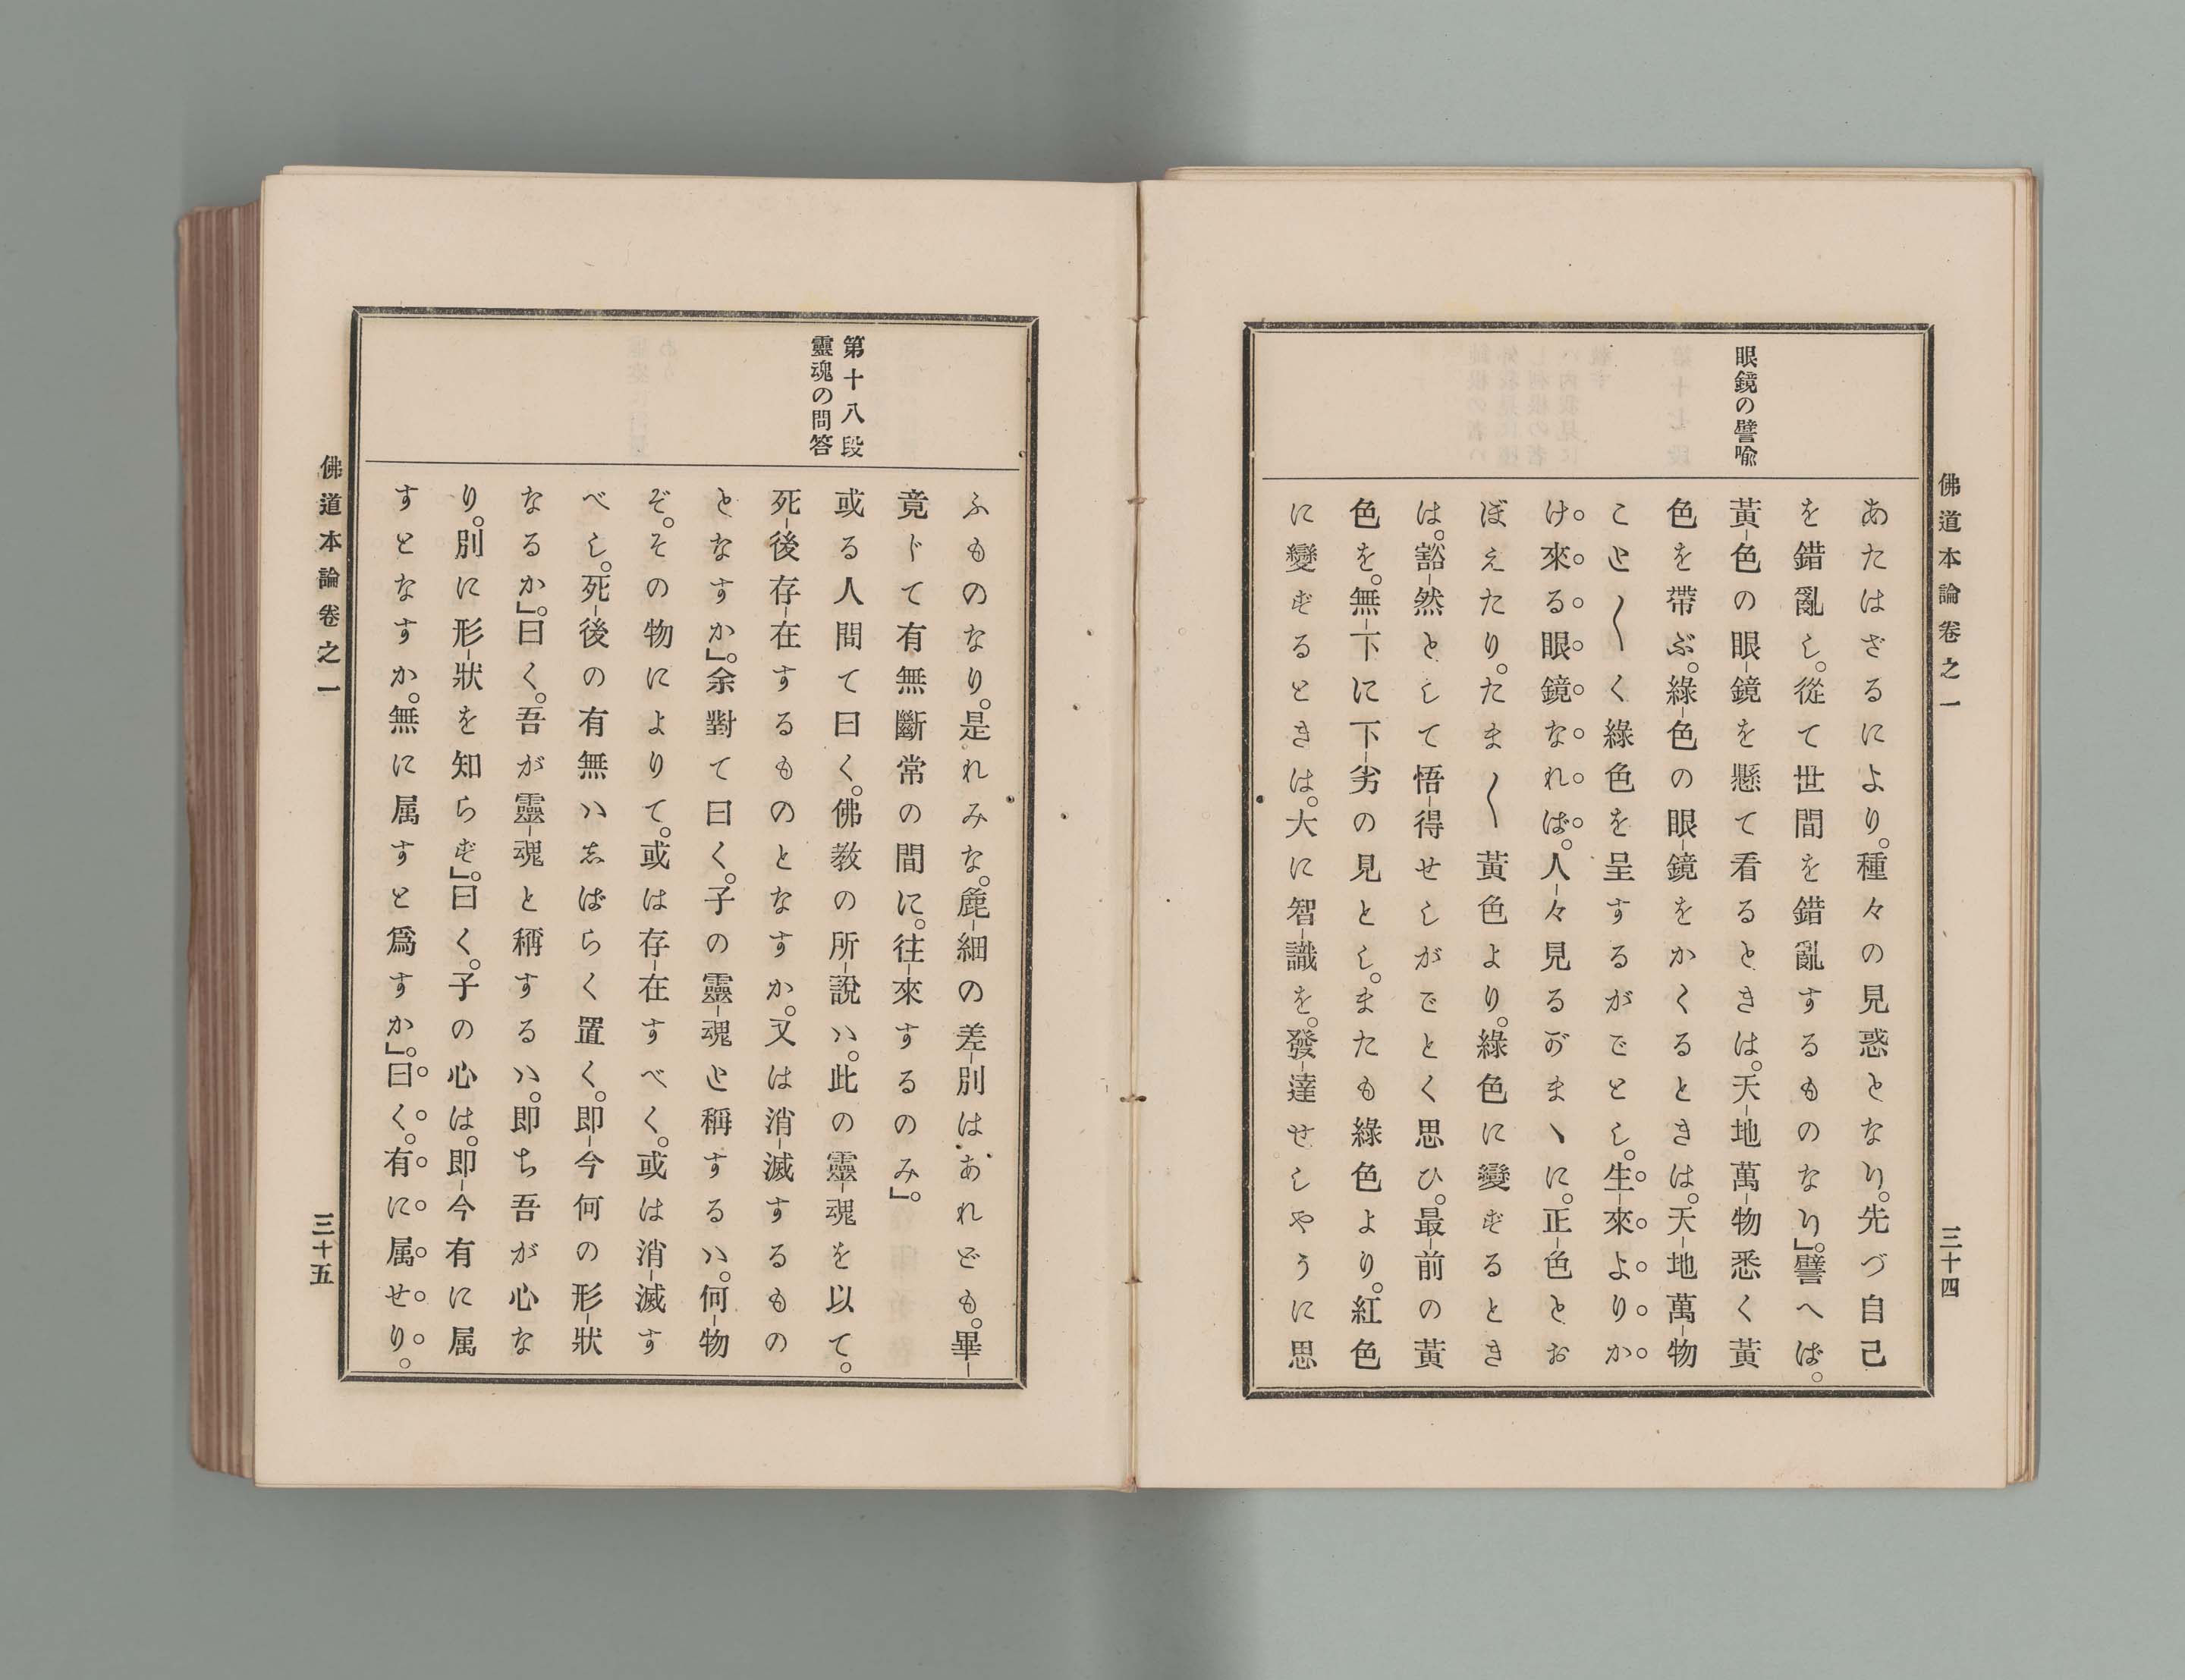 佛道本論卷之一
三十四
眼鏡の譬喩
あたはざるにより。種々の見惑となり。先づ自己
を錯亂し。從て世間を錯亂するものなり」。譬へば。
黃色の眼鏡を懸て看るときは。天地萬物悉く黃
色を帶ぶ。綠色の眼鏡をかくるときは。天地萬物
こと〳〵く綠色を呈するがごとし。生來よりか
け來る眼鏡なれば。人々見るがまゝに。正色とお
ぼえたり。たま〳〵黃色より。綠色に變ずるとき
は。豁然として悟得せしがごとく思ひ。最前の黃
色を。無下に下劣の見とし。またも綠色より。紅色
に變ずるときは。大に智識を。發達せしやうに思
ふものなり。是れみな。麁細の差別はあれども。畢
竟じて有無斷常の間に。往來するのみ」。
第十八段
靈魂の問答
或る人問て曰く。佛教の所說ハ。此の靈魂を以て。
死後存在するものとなすか。又は消滅するもの
となすか」。余對て曰く。子の靈魂と稱するハ。何物
ぞ。その物によりて。或は存在すべく。或は消滅す
べし。死後の有無ハしばらく置く。即今何の形狀
なるか」。曰く。吾が靈魂と稱するハ。即ち吾が心な
り。別に形狀を知らず」。曰く。子の心は。即今有に属
すとなすか。無に属すと爲すか」。曰く。有に属せり。
佛道本論卷之一
三十五